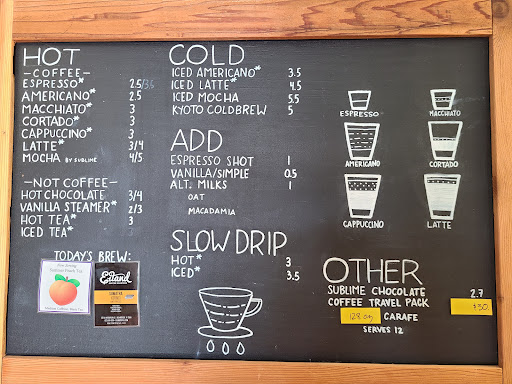 HOT
-COFFEE-
ESPRESSO* 2.5/3.5
AMERICANO* 2.5
MACCHIATO* 3
CORTADO* 3
CAPPUCCINO* 3
LATTE* 3/4
MOCHA BY SUBLIME 4/5
-NOT COFFEE-
HOT CHOCOLATE 3/4
VANILLA STEAMER* 2/3
HOT TEA* 3
ICED TEA*
TODAY'S BREW:
COLD
ICED AMERICANO* 3.5
ICED LATTE* 4.5
ICED MOCHA 5.5
KYOTO COLDBREW 5
ADD
ESPRESSO SHOT 1
VANILLA/SIMPLE 0.5
ALT. MILKS 1
OAT
MACADAMIA
SLOW DRIP
HOT* 3
ICED* 3.5
ESPRESSO
MACCHIATO
AMERICANO
CORTADO
CAPPUCCINO
LATTE
OTHER
SUBLIME CHOCOLATE 2.7
COFFEE TRAVEL PACK $30
128 oz CARAFE
SERVES 12